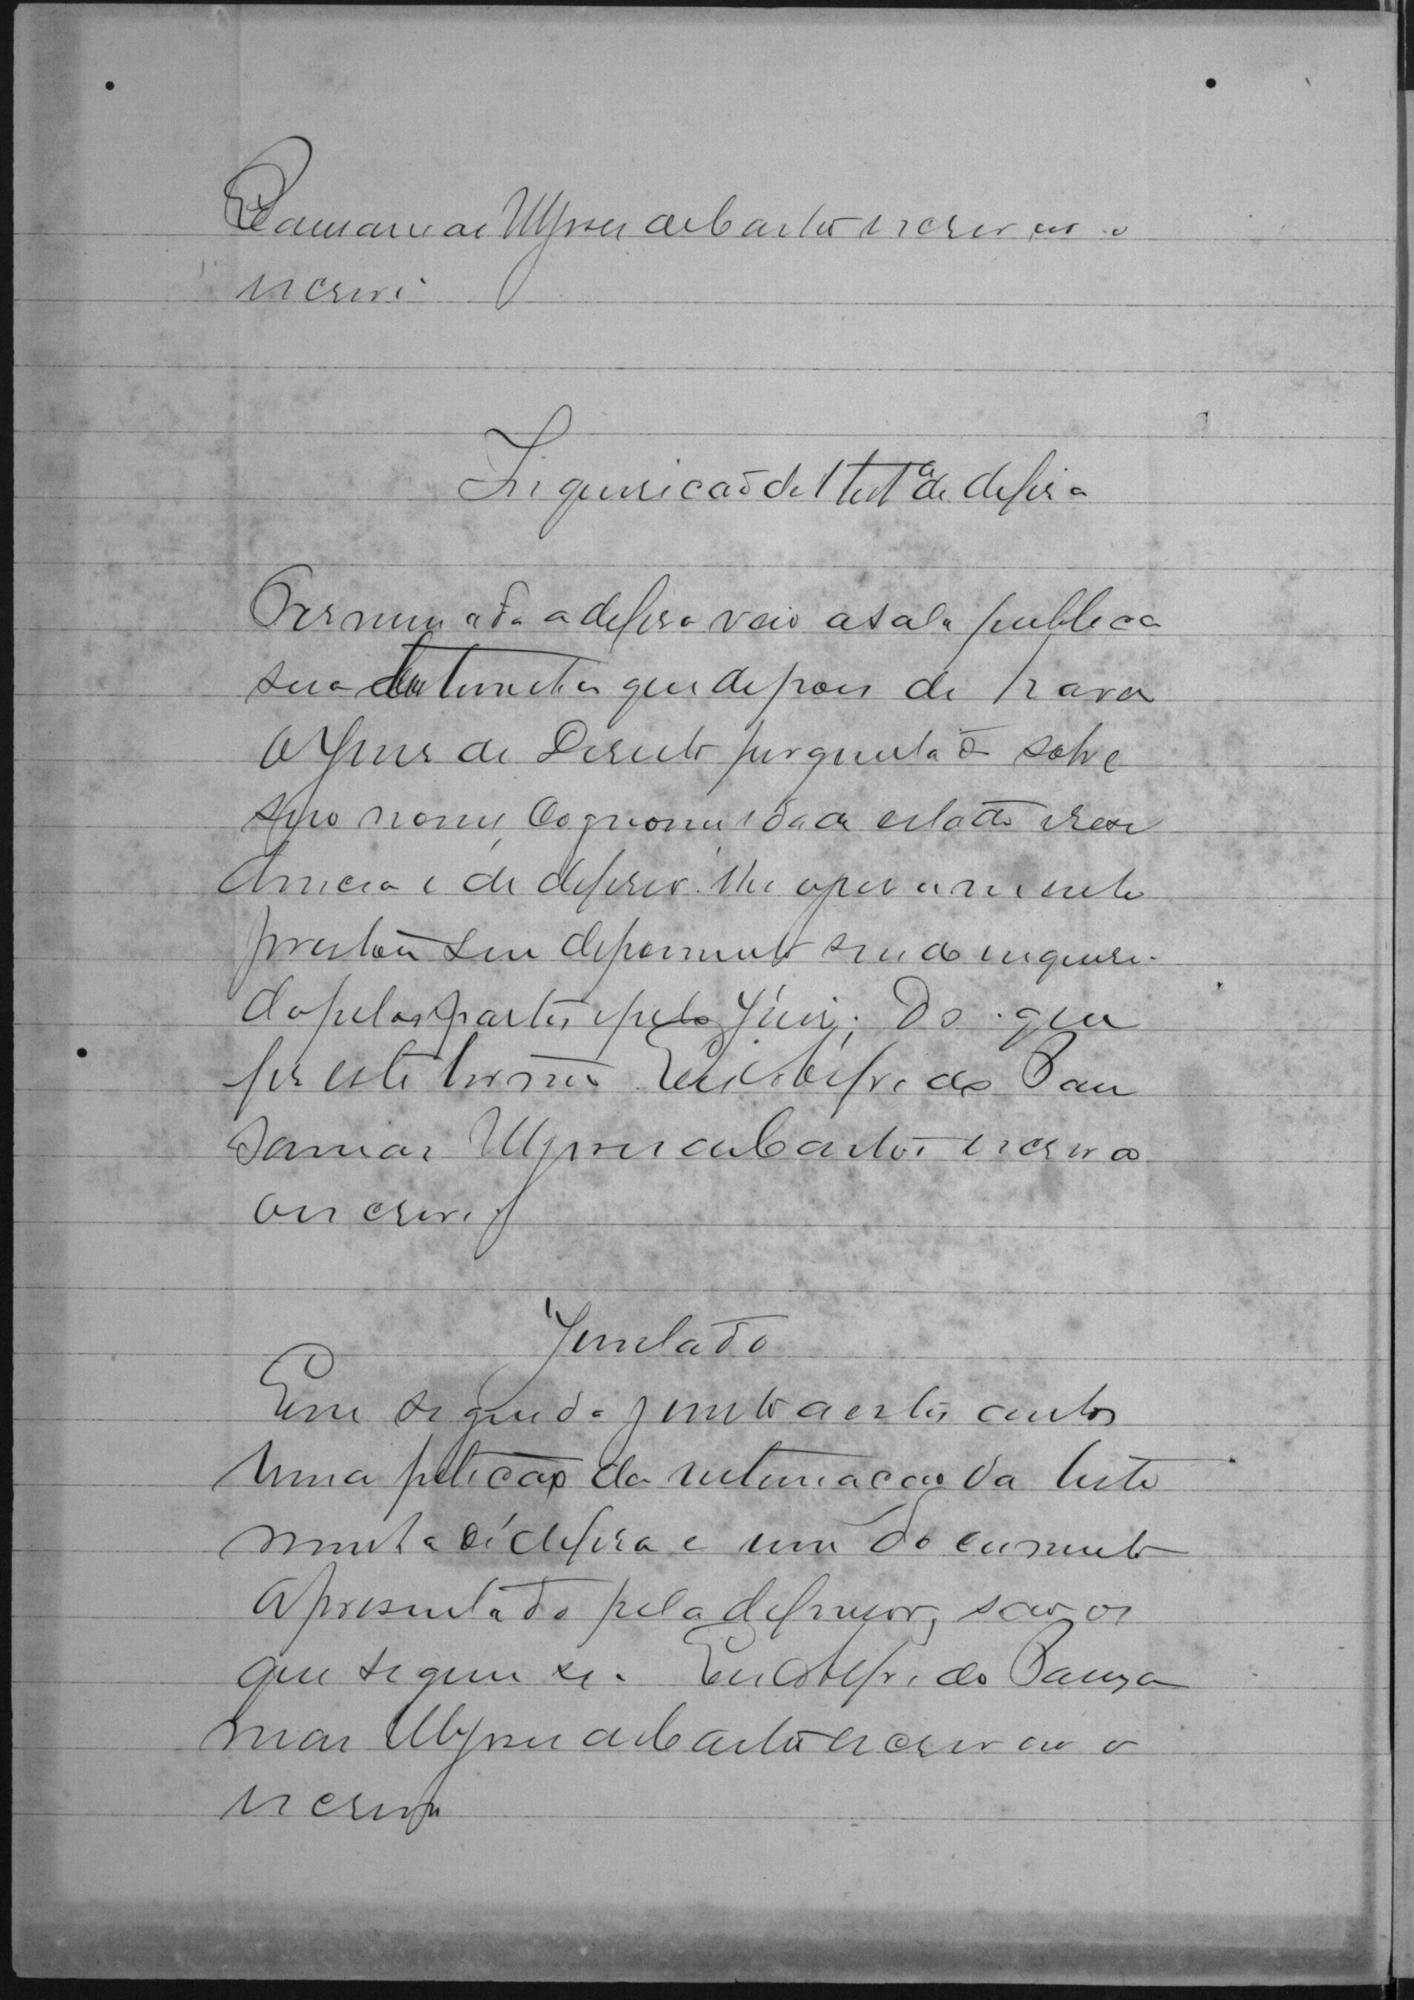 Ulysses de Castro escrivão o
escrevi
Inquirição de 1 testª de defesa
Terminada a defesa veio a sala publica
sua testemunha que depois de
o Juis de Direito perguntado sobre
seo nome, cognome idade estado resi
dencia e de deferir lhe
prestou seu depoimento sendo inquiri
do pelas partes e pelo Juiz; Do que
fis este termo Eu Wilfrido
Ulysses de Castro escrivão
o escrevi
Juntado
Em seguida junto a estes autos
uma petição da intimação da teste
munha de defesa e um documento
apresentado pela defensor, são os
que seguem se. Eu Wilfrido
Ulysses de Castro escrivão o
escrevi